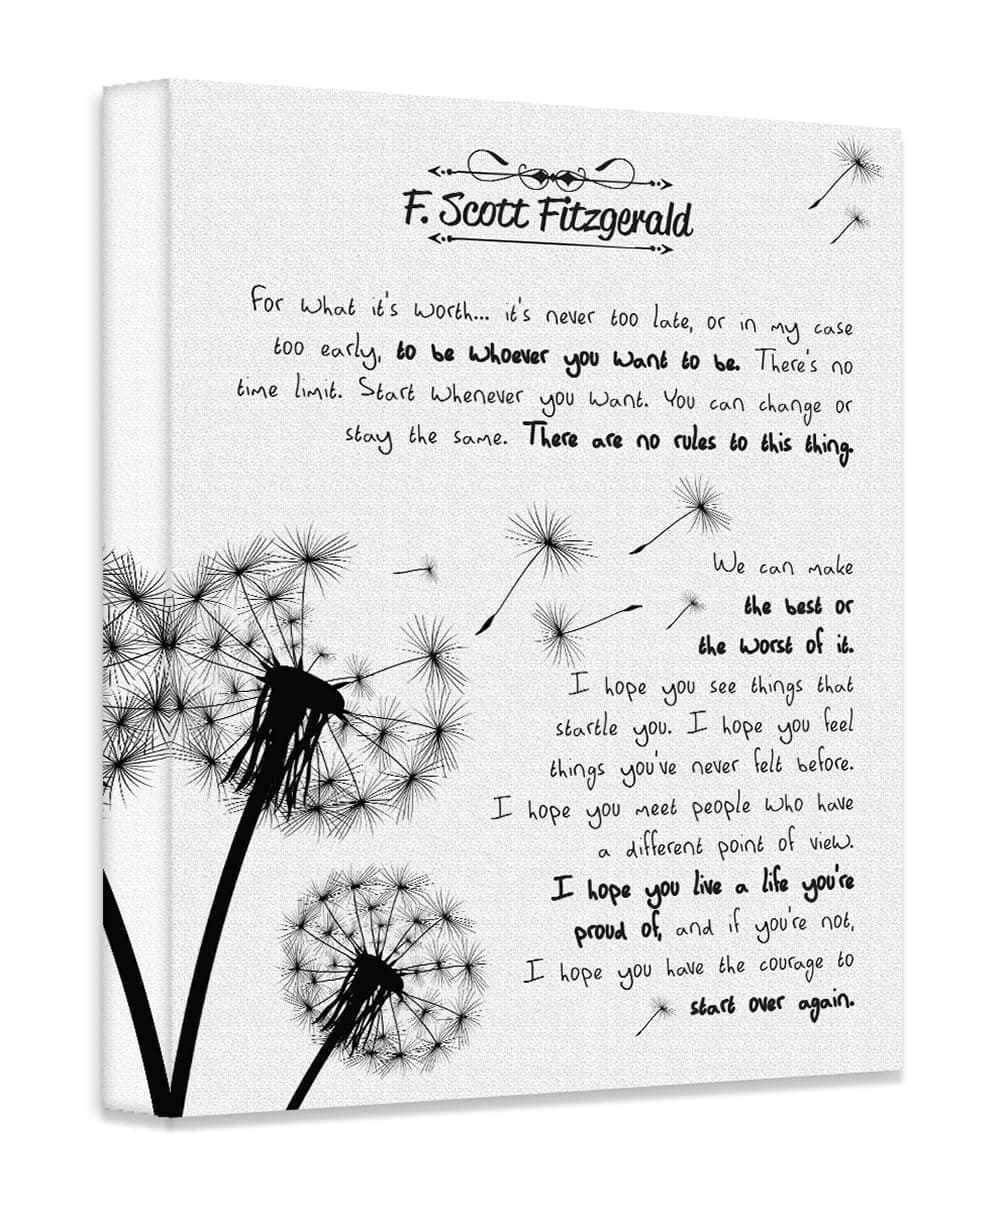 F. Scott Fitzgerald
For what it's worth... it's never too late, or in my case
too early, to be whoever you want to be. There's no
time limit. Start whenever you want. You can change or
stay the same. There are no rules to this thing.
We can make
the best or
the worst of it.
I hope you see things that
startle you. I hope you feel
things you've never felt before.
I hope you meet people who have
a different point of view.
I hope you live a life you're
proud of, and if you're not,
I hope you have the courage to
start over again.